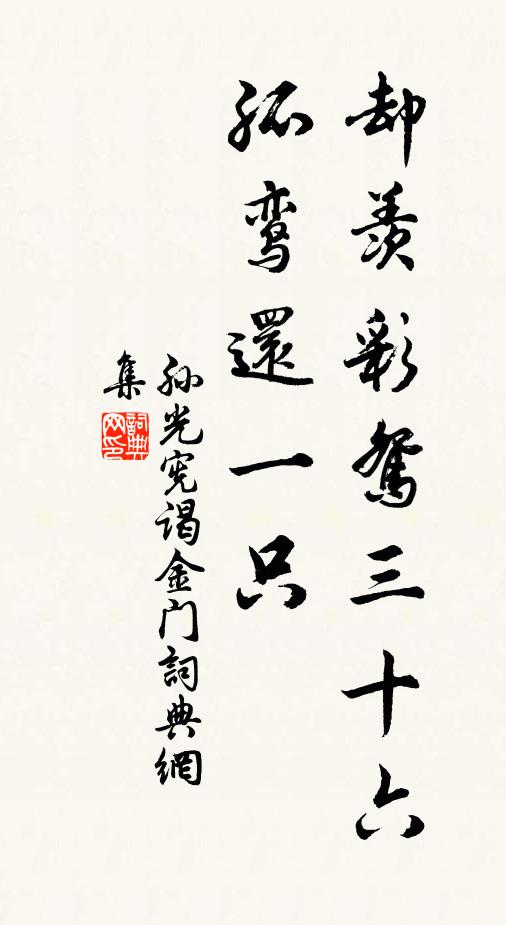 却羡彩鸳三十六
孤鸾還一只
孙光宪谒金门詞典網
集
詞典
网印